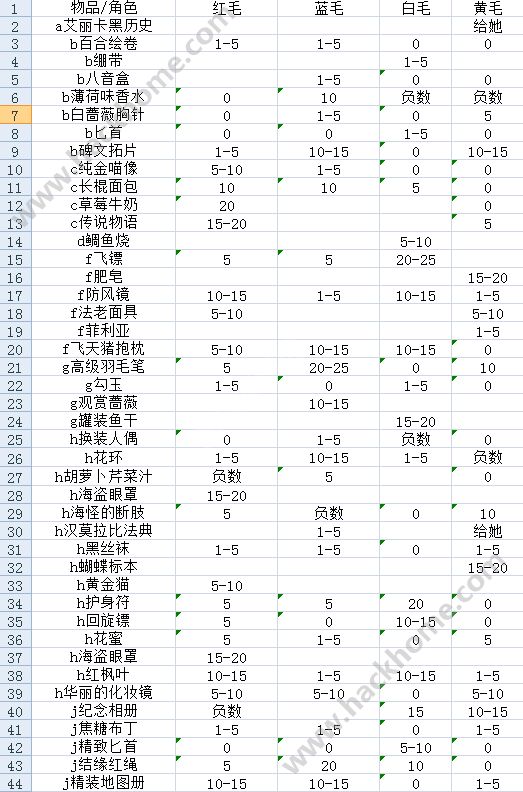 1 物品/角色 红毛 蓝毛 白毛 黄毛
2 a艾丽卡黑历史 给她
3 b百合绘卷 1-5 1-5 0 0
4 b绷带 1-5
5 b八音盒 1-5 0 0
6 b薄荷味香水 0 10 负数 负数
7 b白蔷薇胸针 0 1-5 0 5
8 b匕首 0 0 1-5 0
9 b碑文拓片 1-5 10-15 0 10-15
10 c纯金喵像 5-10 1-5 0 0
11 c长棍面包 10 10 5 0
12 c草莓牛奶 20 0
13 c传说物语 15-20 5
14 d鲷鱼烧 5-10
15 f飞镖 5 5 20-25
16 f肥皂 15-20
17 f防风镜 10-15 1-5 10-15 1-5
18 f法老面具 5-10 5-10
19 f菲利亚 1-5
20 f飞天猪抱枕 5-10 10-15 10-15 0
21 g高级羽毛笔 5 20-25 0 10
22 g勾玉 1-5 0 1-5 0
23 g观赏蔷薇 10-15
24 g罐装鱼干 15-20
25 h换装人偶 0 1-5 负数 0
26 h花环 1-5 10-15 1-5 负数
27 h胡萝卜芹菜汁 负数 5 0
28 h海盗眼罩 15-20
29 h海怪的断肢 5 负数 0 10
30 h汉莫拉比法典 1-5 给她
31 h黑丝袜 1-5 1-5 0 1-5
32 h蝴蝶标本 15-20
33 h黄金猫 5-10
34 h护身符 5 5 20 0
35 h回旋镖 5 0 10-15 0
36 h花蜜 5 1-5 0 5
37 h海盗眼罩 15-20
38 h红枫叶 10-15 1-5 10-15 1-5
39 h华丽的化妆镜 5-10 5-10 0 5-10
40 j纪念相册 负数 15 10-15
41 j焦糖布丁 1-5 1-5 0 1-5
42 j精致匕首 0 0 5-10 0
43 j结缘红绳 5 20 10 0
44 j精装地图册 10-15 10-15 0 1-5
www.hackhome.com
www.hackhome.com